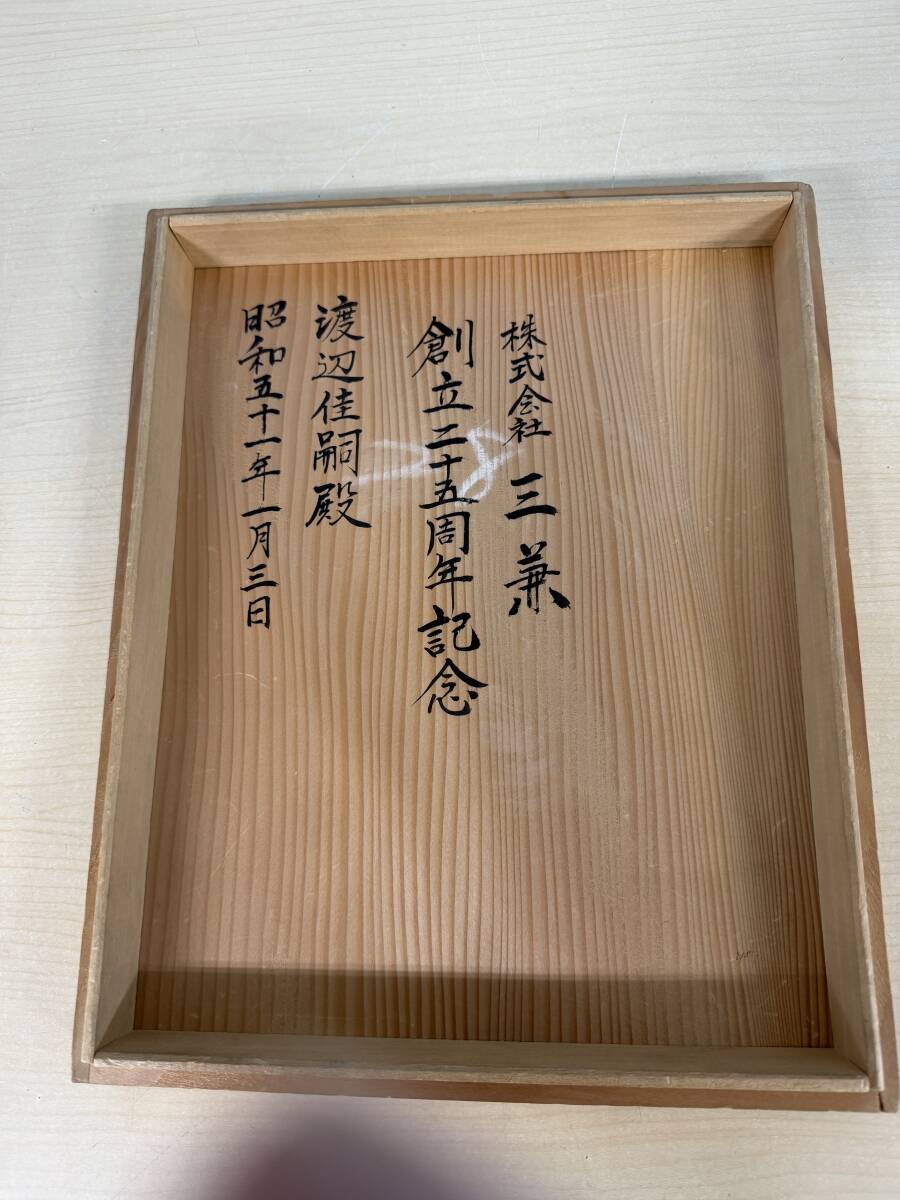 株式会社 三兼
創立二十五周年記念
渡辺佳嗣殿
昭和五十一年一月三日